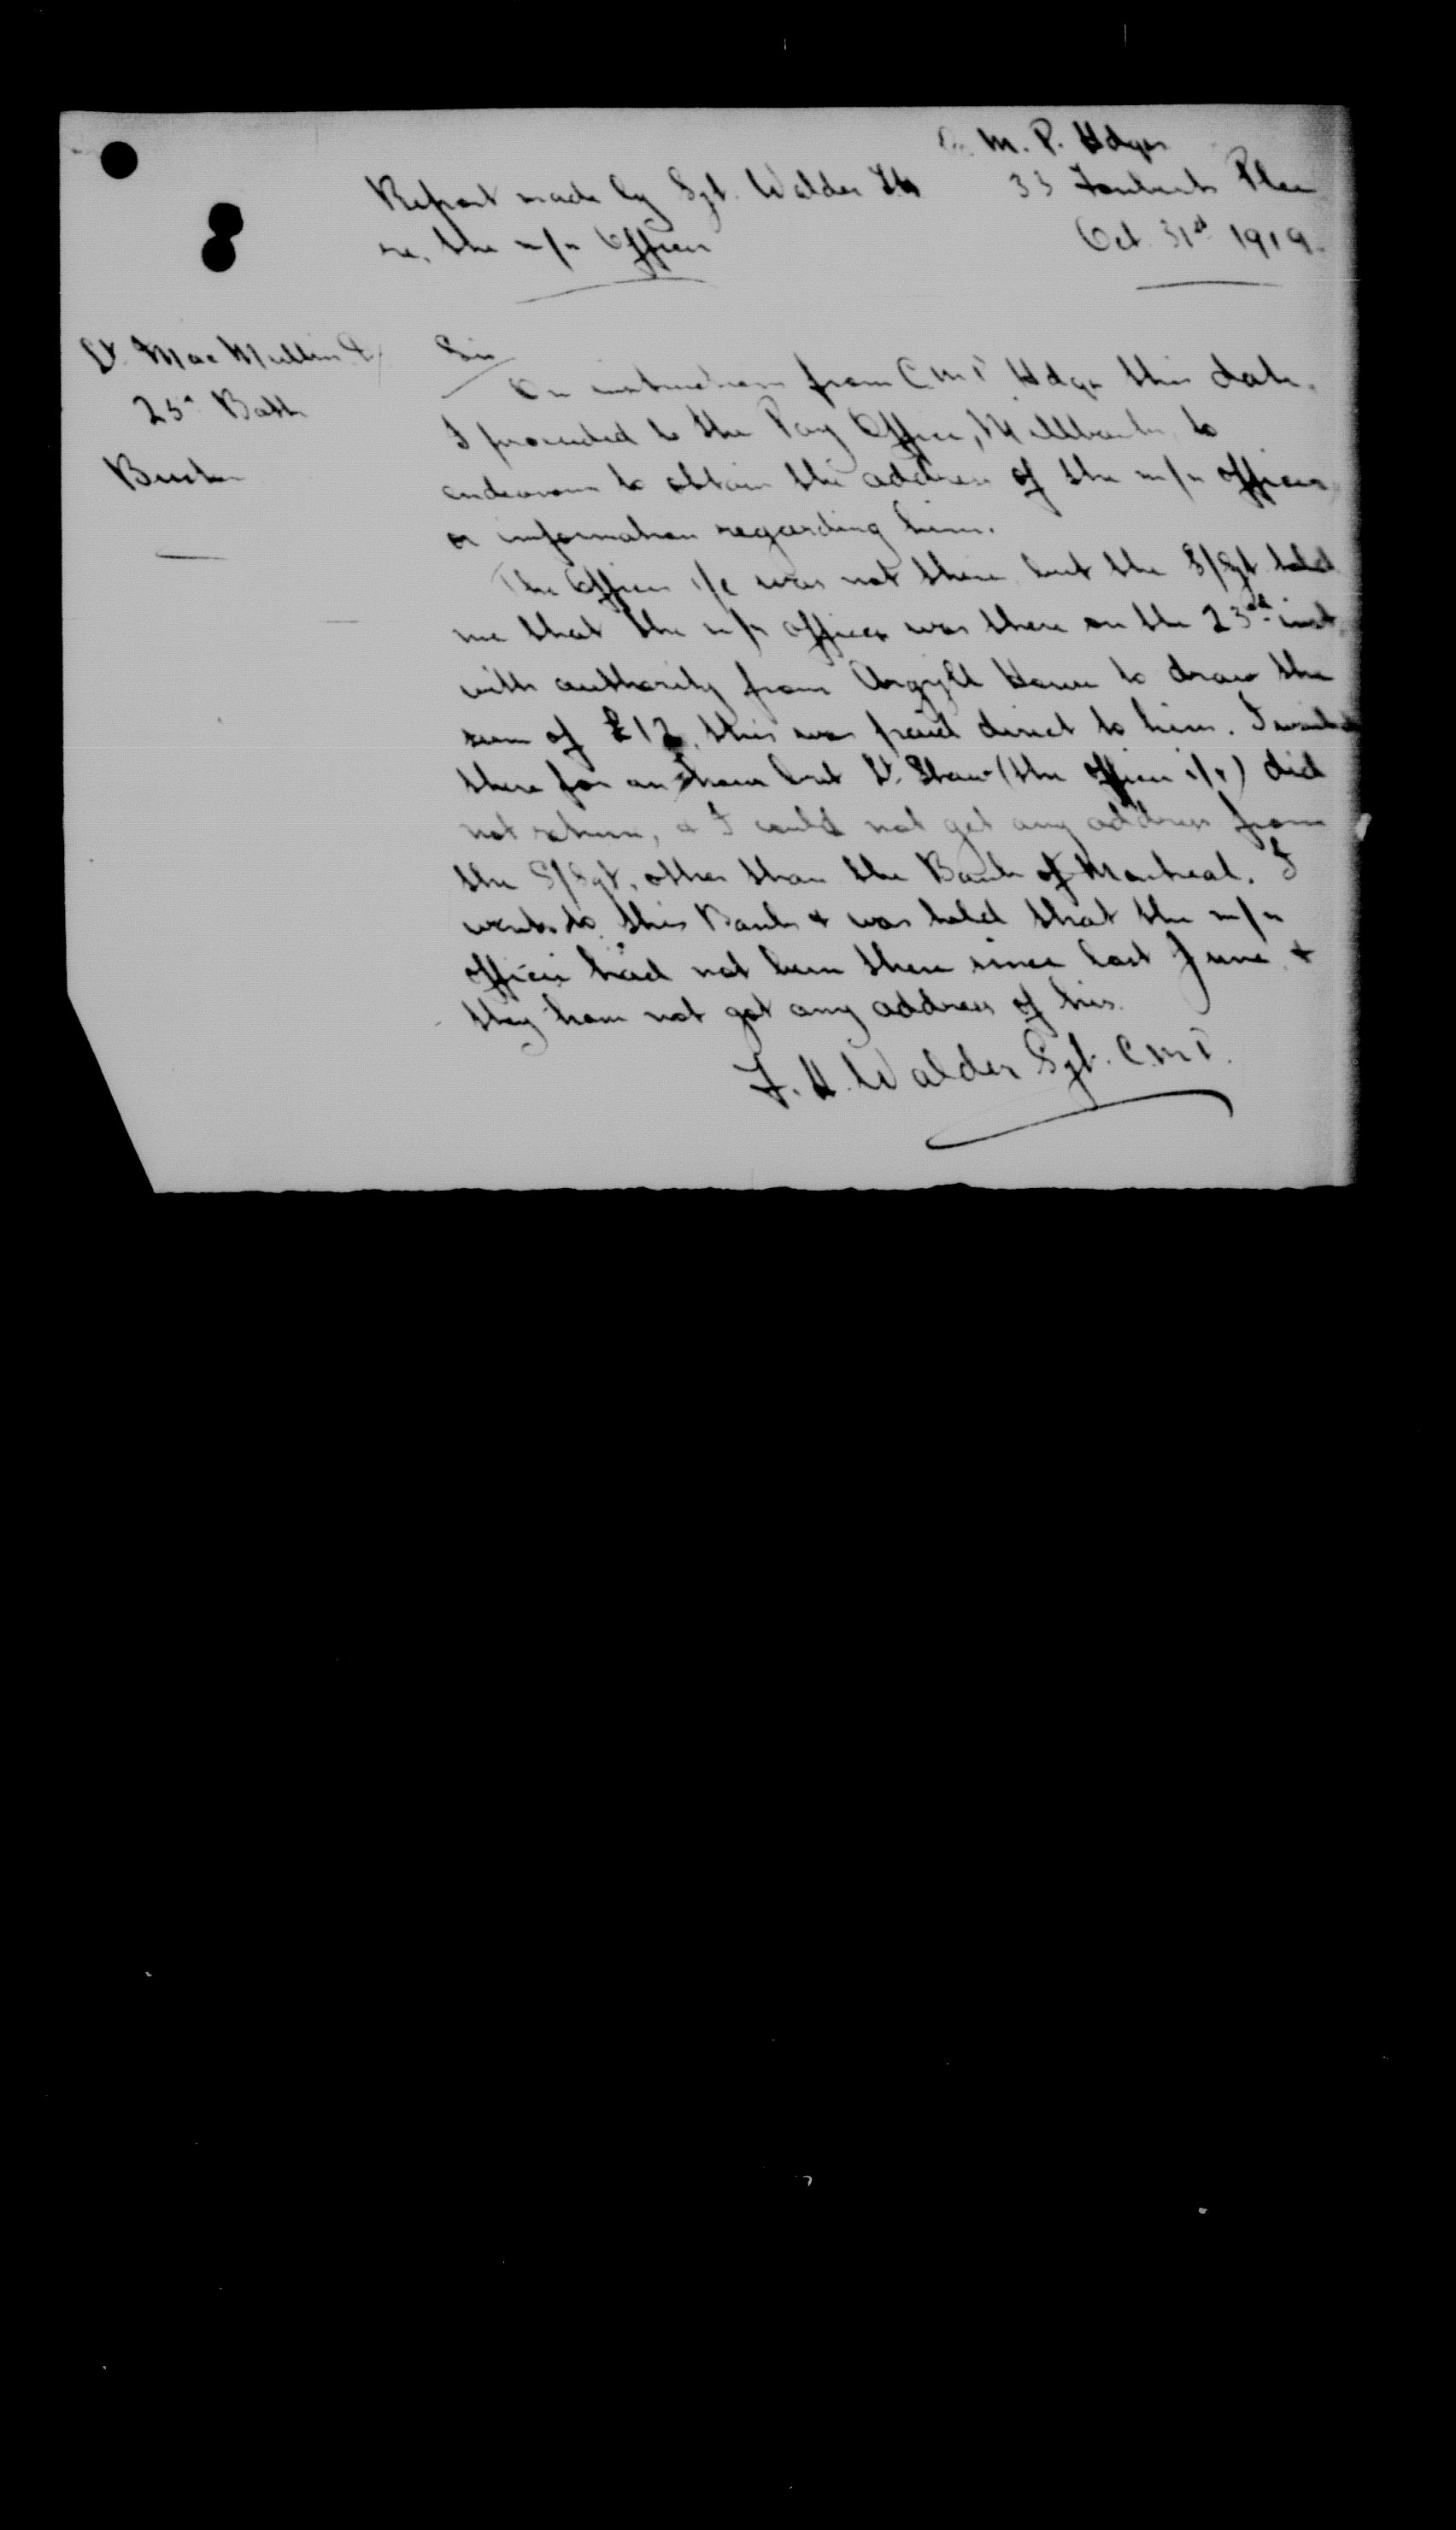 M. P. Hdqrs
Report made by Sgt. Walder 33 Fouberts Place
re, the m/n Officer Oct. 31st 1919.
Lt. MacMullin
25th Batt
Sir
On instructions from C.M.P. Hdqrs this date,
I proceeded to the Pay Office, Millbank, to
endeavour to obtain the address of the m/n officer,
or information regarding him.
The Officer i/c was not there but the S/Sgt told
me that the m/n officer was there on the 23rd inst
with authority from Argyll House to draw the
sum of £12, this was paid direct to him. I waited
there for an hour but Lt. Shaw (the officer i/c) did
not return, & I could not get any address from
the S/Sgt, other than the Bank of Montreal. I
went to this Bank & was told that the m/n
officer had not been there since last June &
they have not got any address of his.
F. H. Walder Sgt. C.M.P.